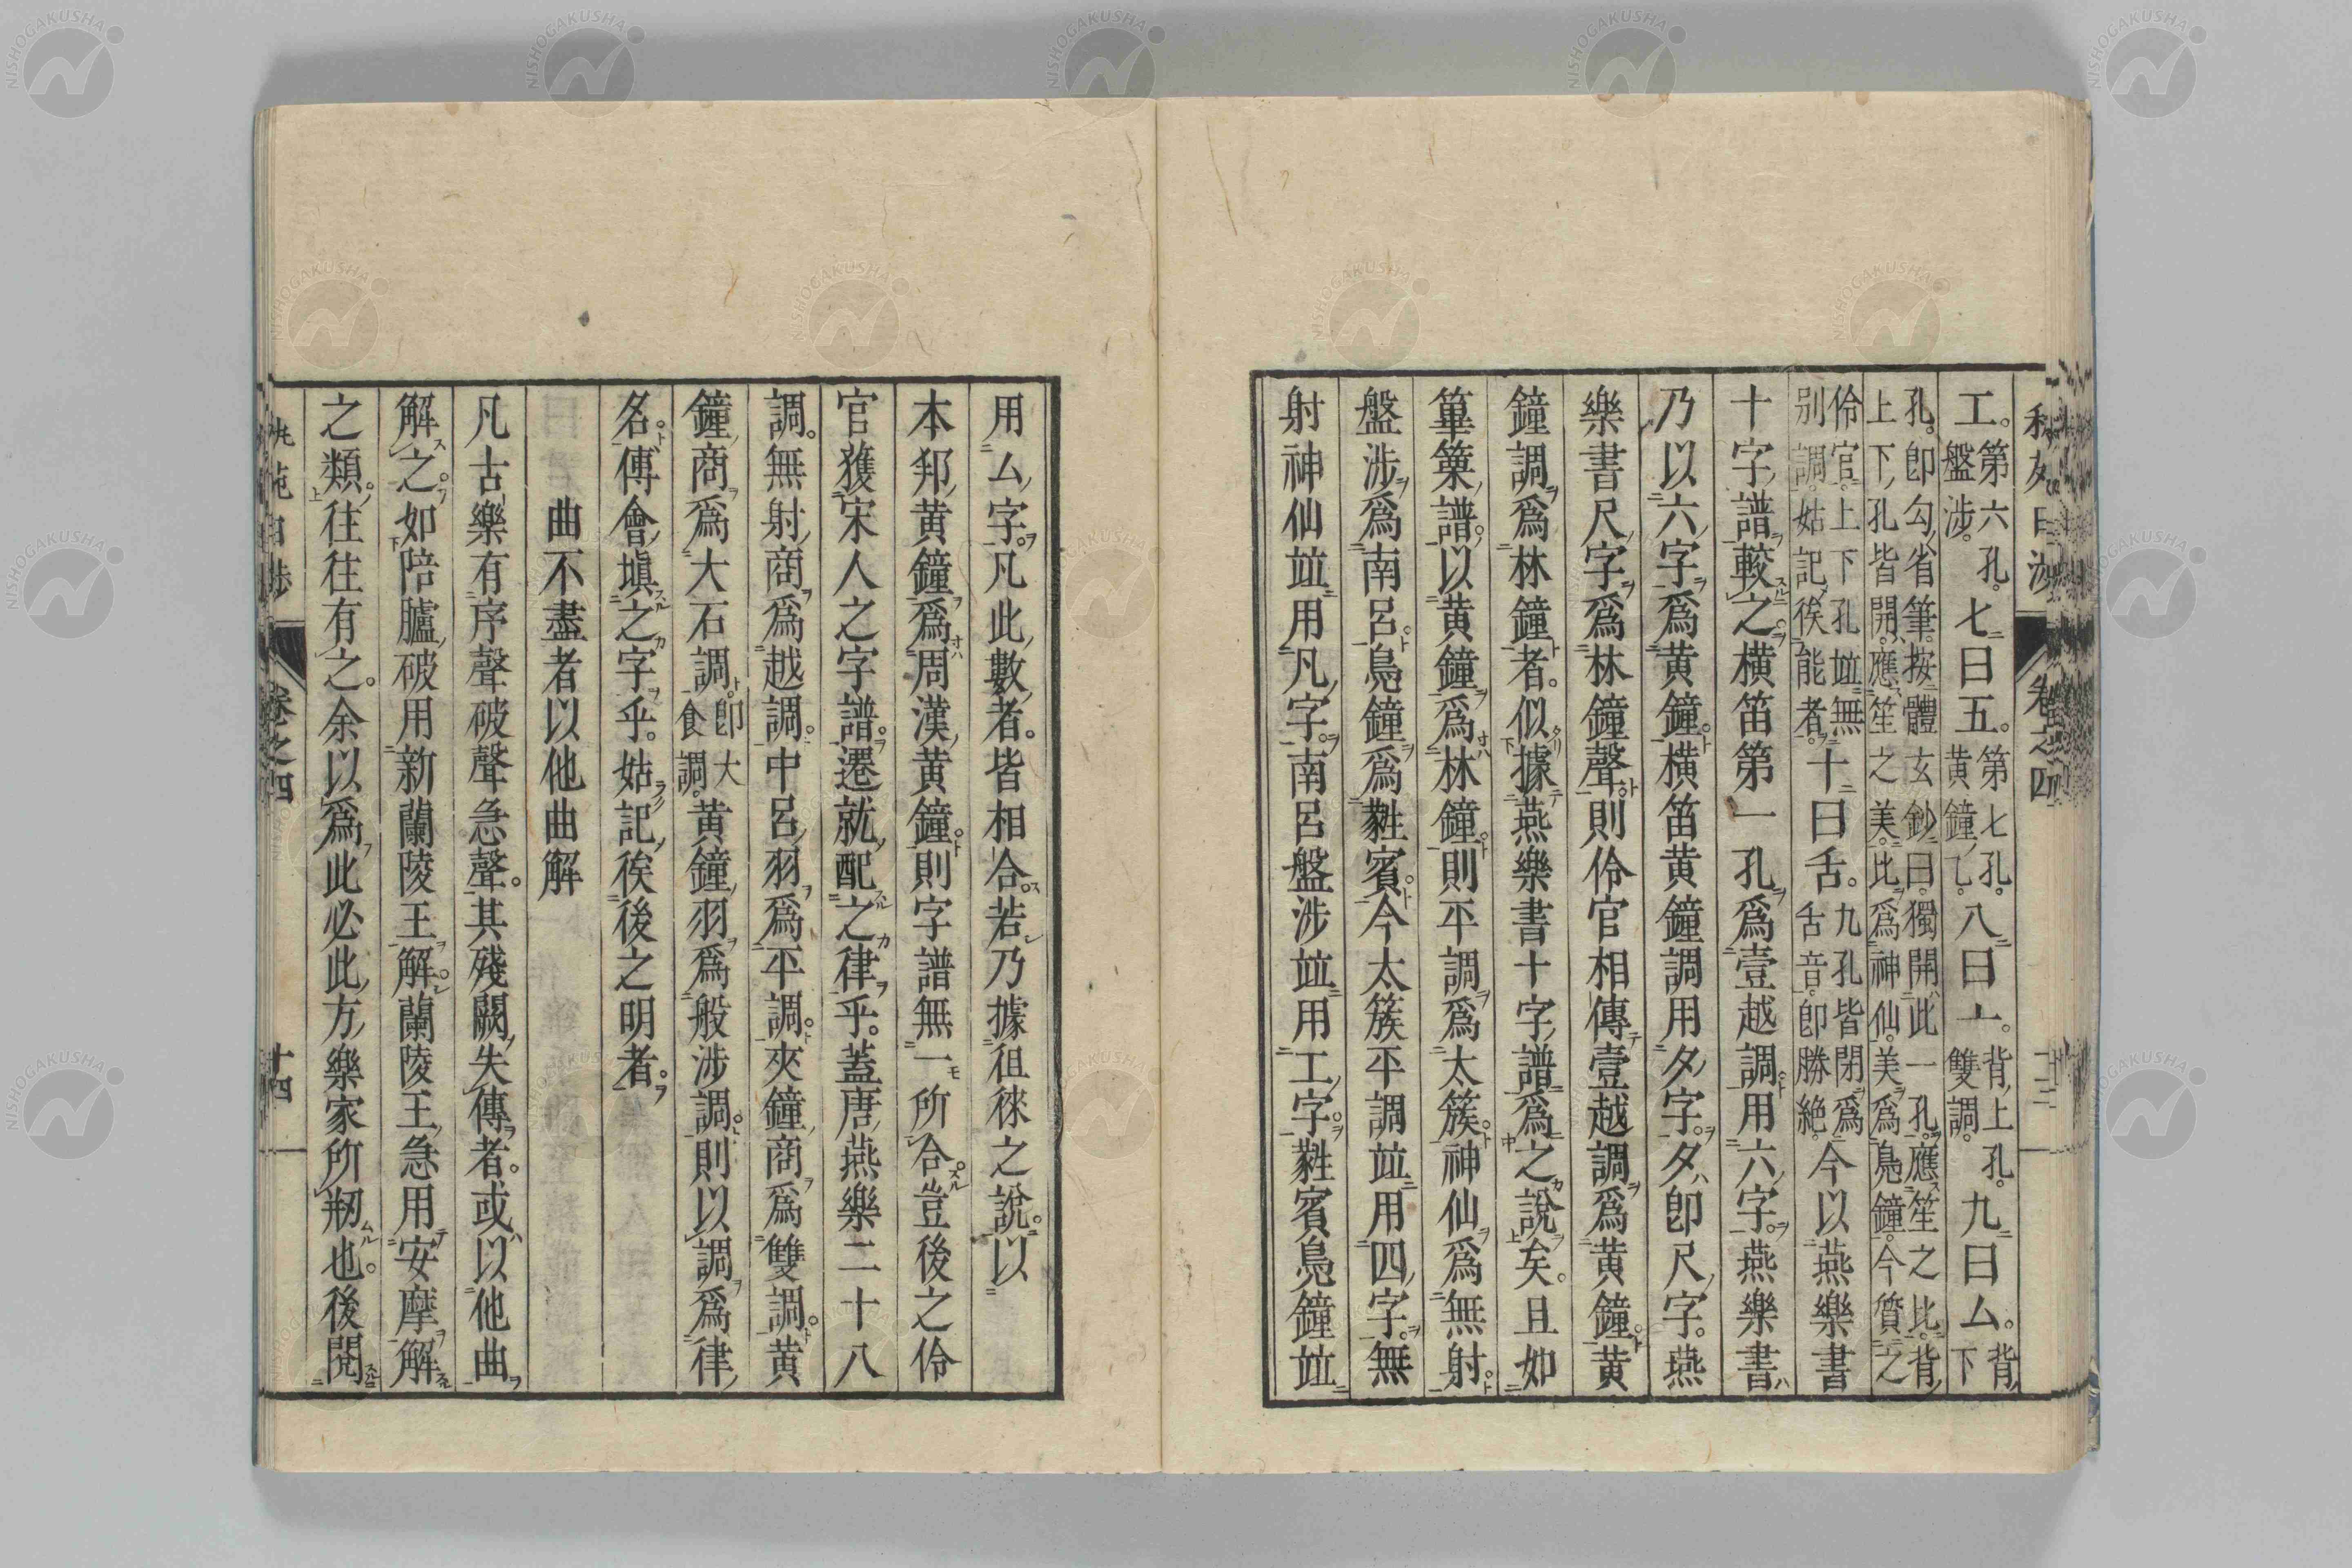 工。第六孔。盤涉。七曰五。第七孔。黃鐘、乙。八曰ㅗ。背上孔。雙調。九曰ム。背下
孔。卽勾、省筆。按體玄鈔曰。獨開此一孔。應笙之比。背上下、孔皆開。應笙之美。比爲神仙。美爲鳧鐘。今質之
伶官。上下孔竝無別調。姑記俟能者。十曰舌。九孔皆閉爲舌音。卽勝絶。今以燕樂書
十字譜較之。橫笛第一孔爲壹越調。用六字。燕樂書
乃以六字爲黃鐘。橫笛黃鐘調用夕字。夕卽尺字。燕
樂書尺字爲林鐘聲。則伶官相傳壹越調爲黃鐘。黃
鐘調爲林鐘者。似據燕樂書十字譜爲之說矣。且如
篳篥譜。以黃鐘爲林鐘。則平調爲太簇。神仙爲無射。
盤涉爲南呂。鳧鐘爲蕤賓。今太簇平調竝用四字。無
射神仙竝用凡字。南呂盤涉竝用工字。蕤賓鳧鐘竝
卷之四
用ム字。凡此數者。皆相合。若乃據徂徠之說。以
本邦黃鐘爲周漢黃鐘。則字譜無一所合。豈後之伶
官獲宋人之字譜。遷就配之律乎。蓋唐燕樂二十八
調。無射商爲越調。中呂羽爲平調。夾鐘商爲雙調。黃
鐘商爲大石調。卽大食調。黃鐘羽爲般涉調。則以調爲律
名。傅會塡之字乎。姑記俟後之明者。
曲不盡者以他曲解
凡古樂有序聲破聲急聲。其殘闕失傳者。或以他曲
解之。如陪臚破用新蘭陵王解。蘭陵王急用安摩解
之類。往往有之。余以爲此必此方樂家所刱也。後閱
卷之四
十四
NISHOGAKUSHA